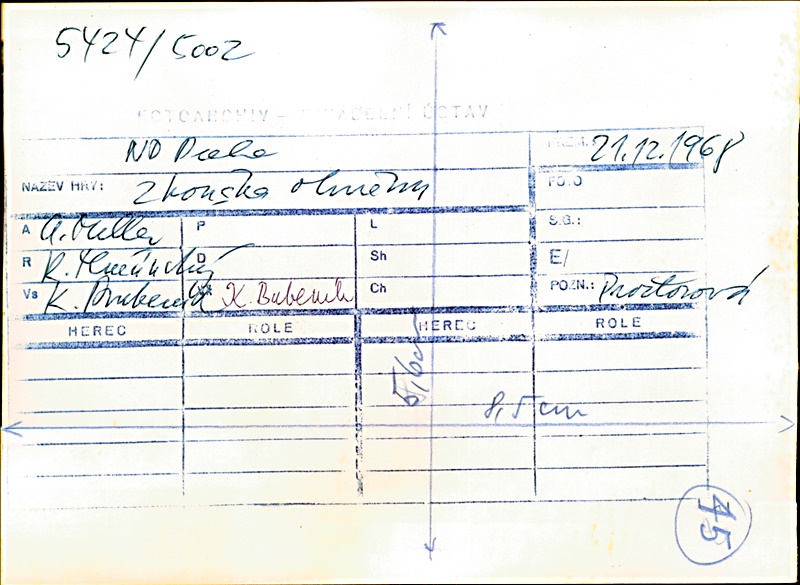 5424/5002
FOTOARCHIV – DIVADELNÍ ÚSTAV
ND Praha
PREM.: 21.12.1968
NÁZEV HRY: Zkouška ohněm
FOTO
A A. Miller P L S.G.:
R D Sh E/
Vs K. Bubeník K. Bubeník Ch POZN.: Prostorová
HEREC ROLE HEREC ROLE
8,5 cm
45